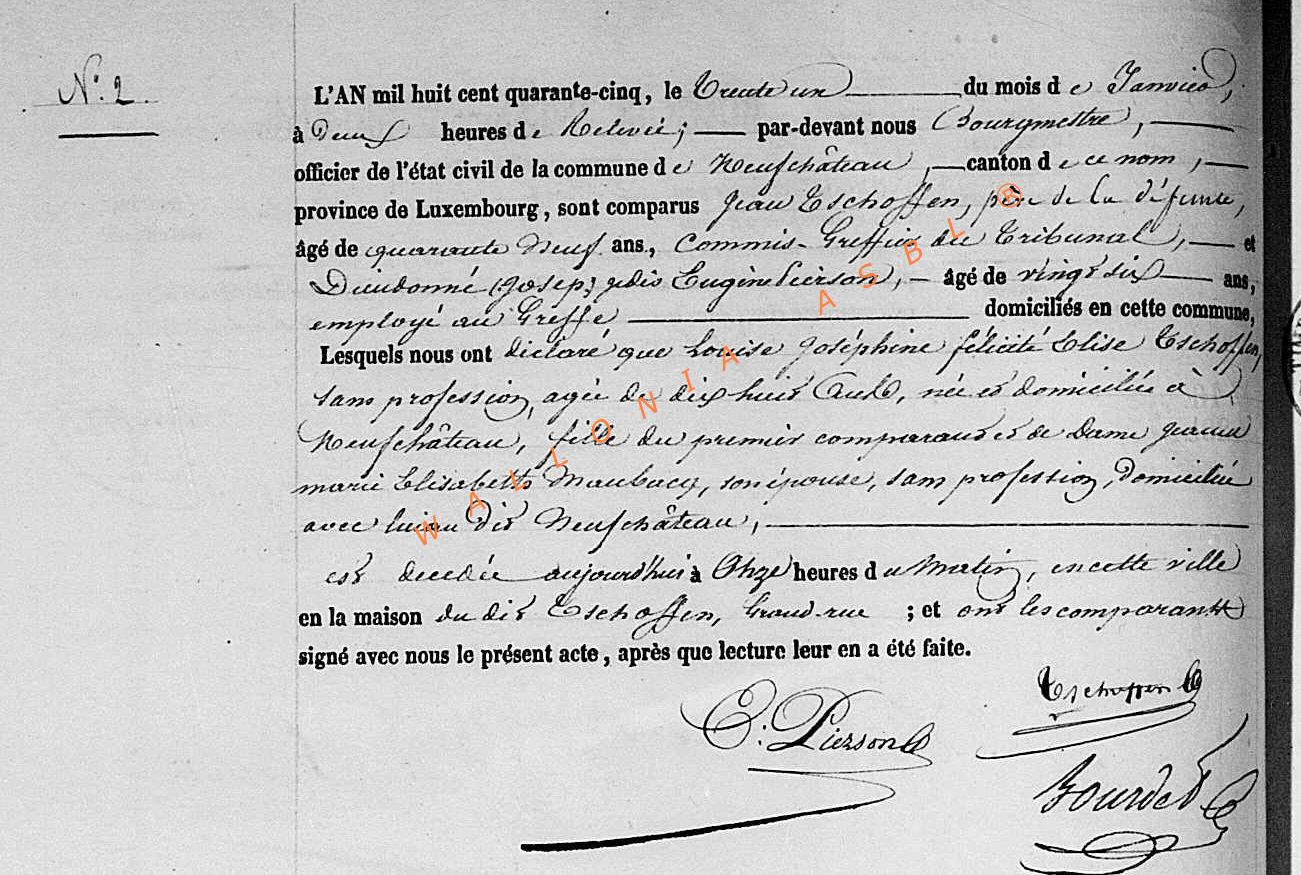 N° 2.
L'AN mil huit cent quarante-cinq, le Trente un du mois d e Janvier,
à Deux heures d e Relevée; par-devant nous Bourgmestre,
officier de l'état civil de la commune d e Neufchâteau, canton d e ce nom,
province de Luxembourg, sont comparus Jean Tschoffen, père de la défunte,
âgé de quarante Neuf ans., Commis-Greffier du Tribunal, et
Dieudonné (Josep) jdis Eugène Pierson, âgé de vingt six ans,
employé au Greffe domiciliés en cette commune,
Lesquels nous ont déclaré que Louise Joséphine félicité Elise Tschoffen,
sans profession, agée de dix huit ans, née et domiciliée à
Neufchâteau, fille du premier comparant et de Dame jeanne
marie Elisabeth Maubacq, son épouse, sans profession, Domiciliée
avec lui au dit Neufchâteau,
est decedée aujourd'hui à Onze heures d u Matin, en cette ville
en la maison du dit Tschoffen, Grand-rue ; et ont les comparants
signé avec nous le présent acte, après que lecture leur en a été faite.
Tschoffen
E. Pierson
Bourdet
WALLONIA ASBL ®